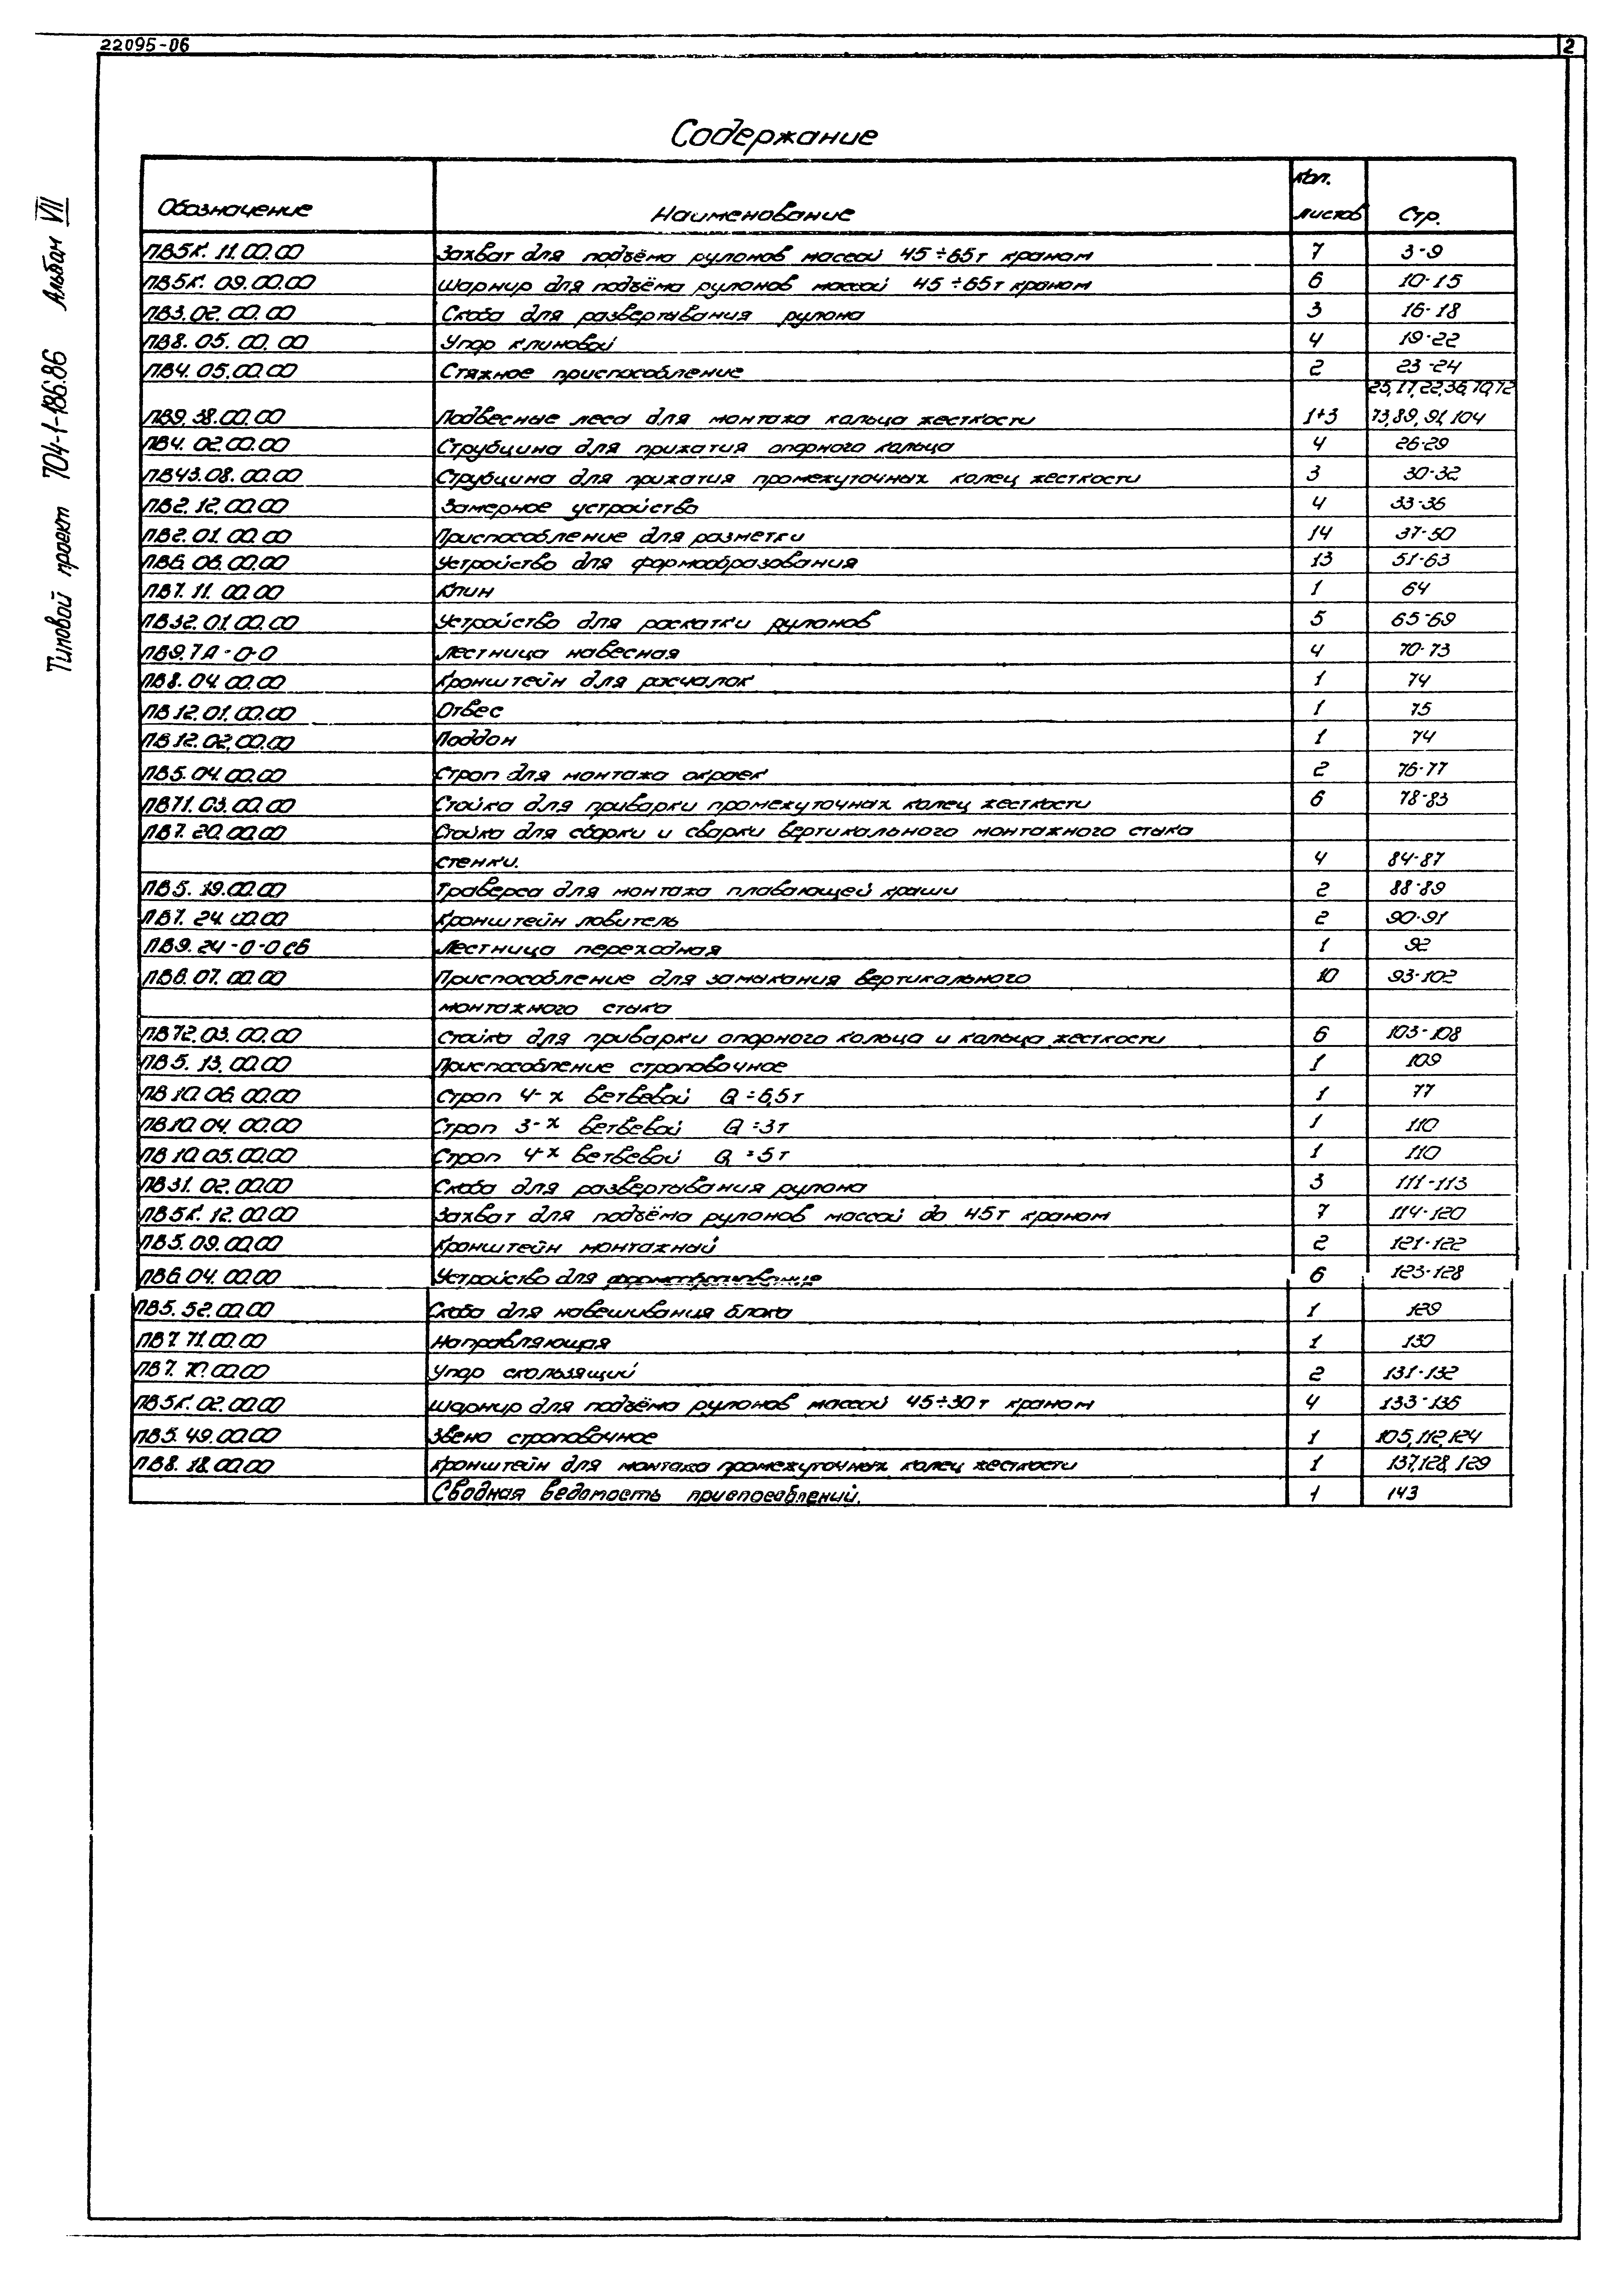 22095-06
2
Типовой проект 704-1-186.86 Альбом VII
Содержание
Обозначение Наименование Кол. листов Стр.
ПВ5К. 11.00.00 Захват для подъёма рулонов массой 45÷65т краном 7 3-9
ПВ5К. 09.00.00 Шарнир для подъёма рулонов массой 45÷65т краном 6 10-15
ПВ3.02.00.00 Скоба для развертывания рулона 3 16-18
ПВ8.05.00.00 Упор клиновой 4 19-22
ПВ4.05.00.00 Стяжное приспособление 2 23-24
25,17,22,36,70,72
ПВ9.38.00.00 Подвесные леса для монтажа кольца жесткости 1+3 73,89,91,104
ПВ4.02.00.00 Струбцина для прижатия опорного кольца 4 26-29
ПВ43.08.00.00 Струбцина для прижатия промежуточных колец жесткости 3 30-32
ПВ2.12.00.00 Замерное устройство 4 33-36
ПВ2.01.00.00 Приспособление для разметки 14 37-50
ПВ6.06.00.00 Устройство для формообразования 13 51-63
ПВ7.11.00.00 Клин 1 64
ПВ32.01.00.00 Устройство для раскатки рулонов 5 65-69
ПВ9.7А-0-0 Лестница навесная 4 70-73
ПВ8.04.00.00 Кронштейн для расчалок 1 74
ПВ12.01.00.00 Отвес 1 75
ПВ12.02.00.00 Поддон 1 74
ПВ5.04.00.00 Строп для монтажа окраек 2 76-77
ПВ71.03.00.00 Стойка для приварки промежуточных колец жесткости 6 78-83
ПВ7.20.00.00 Стойка для сборки и сварки вертикального монтажного стыка
стенки. 4 84-87
ПВ5.19.00.00 Траверса для монтажа плавающей крыши 2 88-89
ПВ7.24.00.00 Кронштейн ловитель 2 90-91
ПВ9.24-0-0 сб Лестница переходная 1 92
ПВ8.07.00.00 Приспособление для замыкания вертикального 10 93-102
монтажного стыка
ПВ72.03.00.00 Стойка для приварки опорного кольца и кольца жесткости 6 103-108
ПВ5.13.00.00 Приспособление строповочное 1 109
ПВ10.06.00.00 Строп 4-х ветвевой Q=6,5т 1 77
ПВ10.04.00.00 Строп 3-х ветвевой Q=3т 1 110
ПВ10.05.00.00 Строп 4-х ветвевой Q=5т 1 110
ПВ31.02.00.00 Скоба для развертывания рулона 3 111-113
ПВ5К.12.00.00 Захват для подъёма рулонов массой до 45т краном 7 114-120
ПВ5.09.00.00 Кронштейн монтажный 2 121-122
ПВ6.04.00.00 Устройство для 6 123-128
ПВ5.52.00.00 Скоба для навешивания блока 1 129
ПВ7.71.00.00 Направляющая 1 130
ПВ7.70.00.00 Упор скользящий 2 131-132
ПВ5К.02.00.00 Шарнир для подъёма рулонов массой 45÷30т краном 4 133-136
ПВ5.49.00.00 Звено строповочное 1 105,112,124
ПВ8.18.00.00 Кронштейн для монтажа промежуточных колец жесткости 1 137,128,129
Сводная ведомость приспособлений. 1 143